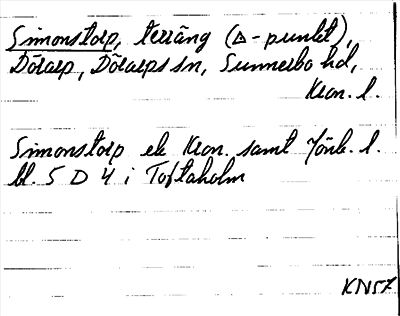 Simonstorp, terräng (Δ-punkt),
Dörarp, Dörarps sn, Sunnerbo hd,
Kron. l.
Simonstorp ek Kron. samt Jönk. l.
bl. 5 D 4 i Toftaholm
KN57